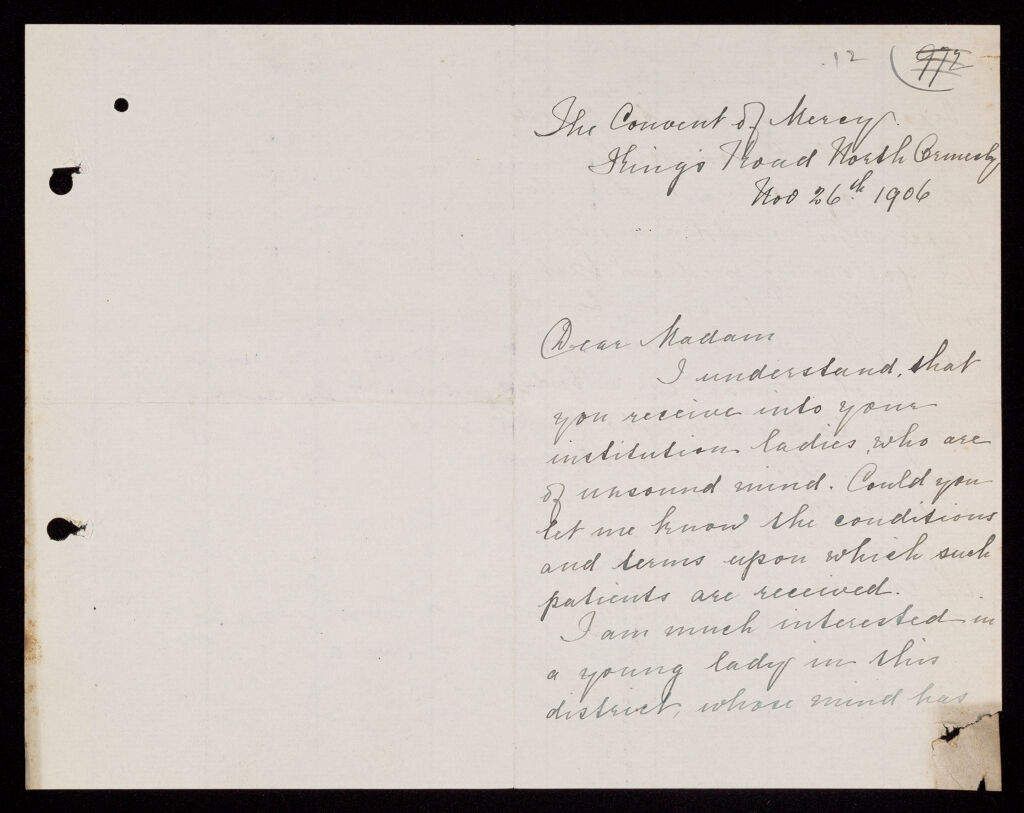 12 (972
The Convent of Mercy.
King's Road North Ormesby
Nov 26th 1906
Dear Madam
I understand, that
you receive into your
institution ladies, who are
of unsound mind. Could you
let me know the conditions
and terms upon which such
patients are received.
I am much interested in
a young lady in this
district, whose mind has